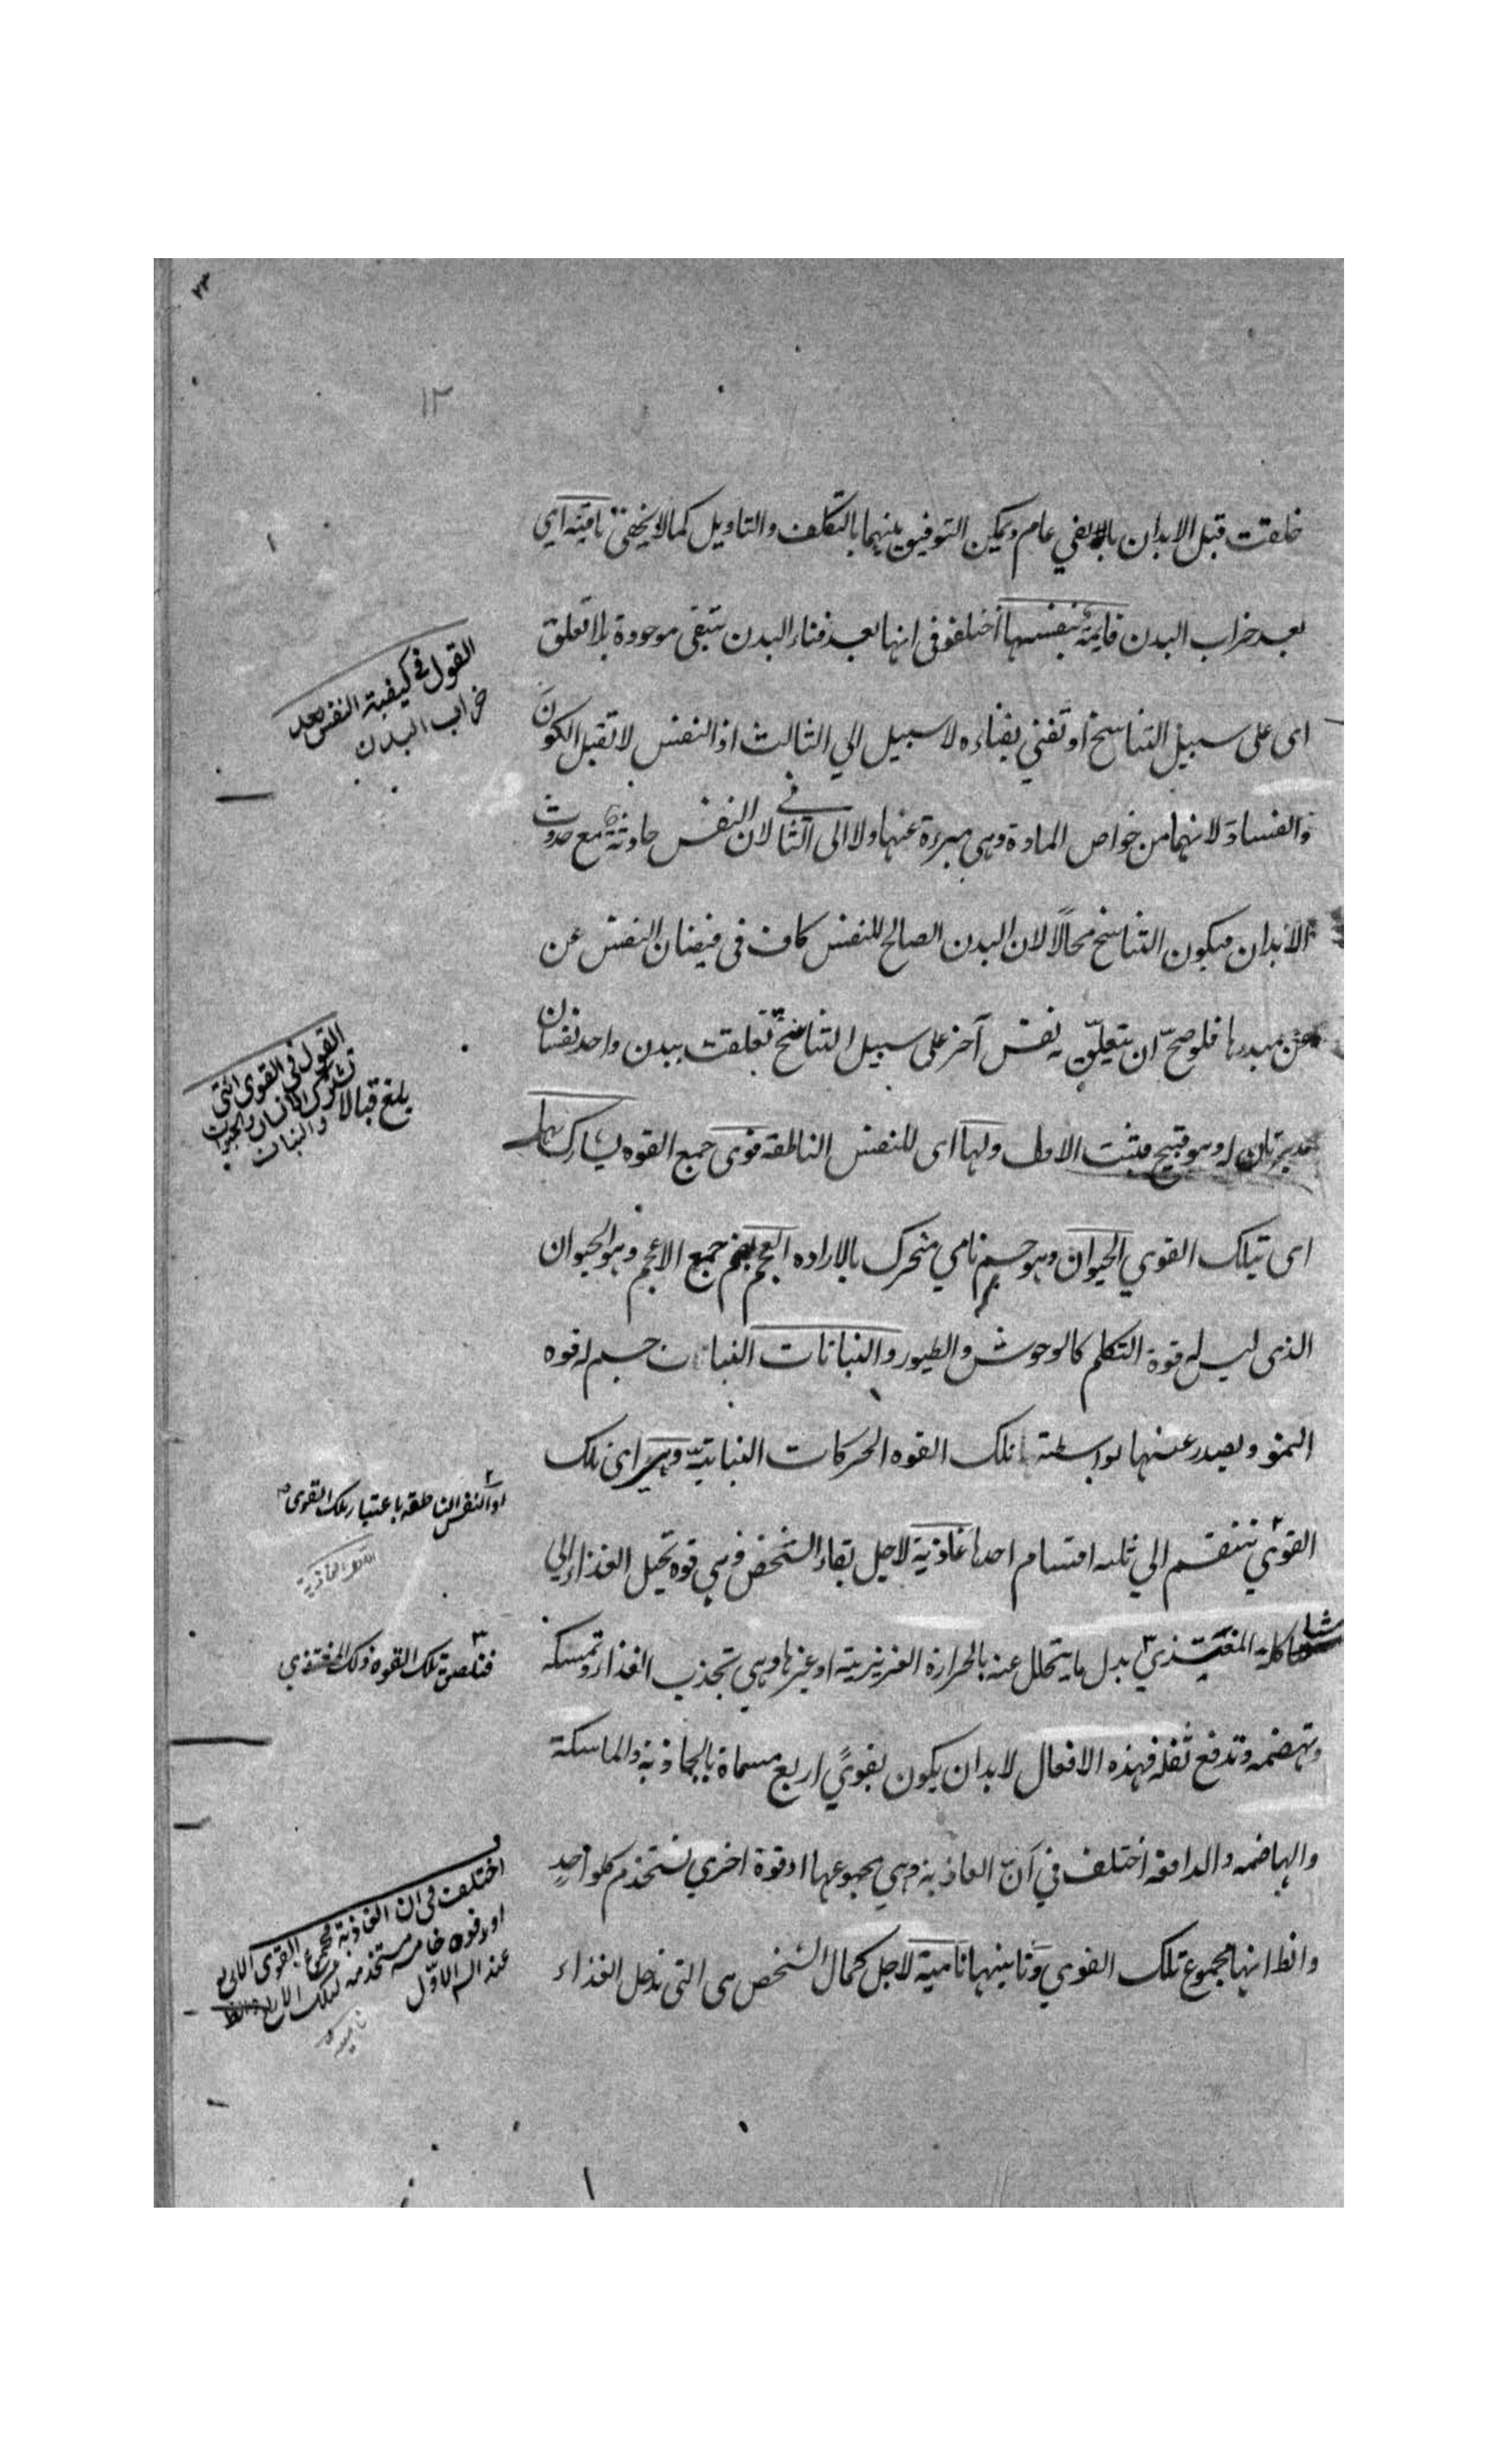 ١٢
خلقت قبل الابدان بالفي عام ويمكن التوفيق بينهما بالتكلف والتاويل كما لا يخفى باقية اي
بعد خراب البدن قايمة بنفسها اختلفو في انها بعد فناء البدن تبقى موجودة بلا تعلق
اى على سبيل التناسخ او تفني بفناءه لا سبيل الي الثالث اذ النفس لا تقبل الكون
والفساد لانهما من خواص المادة وهي مبرءة عنها ولا الى الثاني لان النفس حادثة مع حدوث
الابدان فيكون التناسخ محالًا لان البدن الصالح للنفس كاف في فيضان النفس عن
عن مبدءها فلو صحّ ان يتعلّق به نفس آخر على سبيل التناسخ تعلقت ببدن واحد نفسان
مدبرتان له وهو قبيح فثبت الاول ولها اى للنفس الناطقه قوى جمع القوه يشارك بها
اى بتلك القوي الحيوان وهو جسم نامي متحرك بالاراده العجم جمع الاعجم وهو الحيوان
الذى ليس له قوة التكلم كالوحوش والطيور والنباتات النبات جسم له قوه
النمو ويصدر عنها بواسطة تلك القوه الحركات النباتية وهي اى تلك
القوي تنقسم الي ثلثه اقسام احدها غاذية لاجل بقاء الشخص وهي قوه تحيل الغذاء الي
مشاكلة المغتذي بدل ما يتحلل عنه بالحرارة الغريزية او غيرها وهي تجذب الغذاء وتمسكه
وتهضمه وتدفع ثفله فهذه الافعال لابد ان يكون بقويً اربع مسماة بالجاذبة والماسكة
والهاضمه والدافعة اختلف في انّ الغاذية هي مجموعها او قوة اخري تستخدم كلواحدٍ
وانظ انها مجموع تلك القوي وثانيها نامية لاجل كمال الشخص هى التى تدخل الغذاء
القول في كيفية النفس بعد
خراب البدن
القول في القوى التي
تشارك الانسان والحيوان
والنبات
بلغ قبالا
او النفس الناطقة باعتبار تلك القوى
القوه الغاذية
فتلصق تلك القوه ذلك المغتذي
اختلف في ان الغاذية مجموع القوى الاربع
او قوه خامسه مستخدمه لتلك الاربع
عند الاوّل
نامية